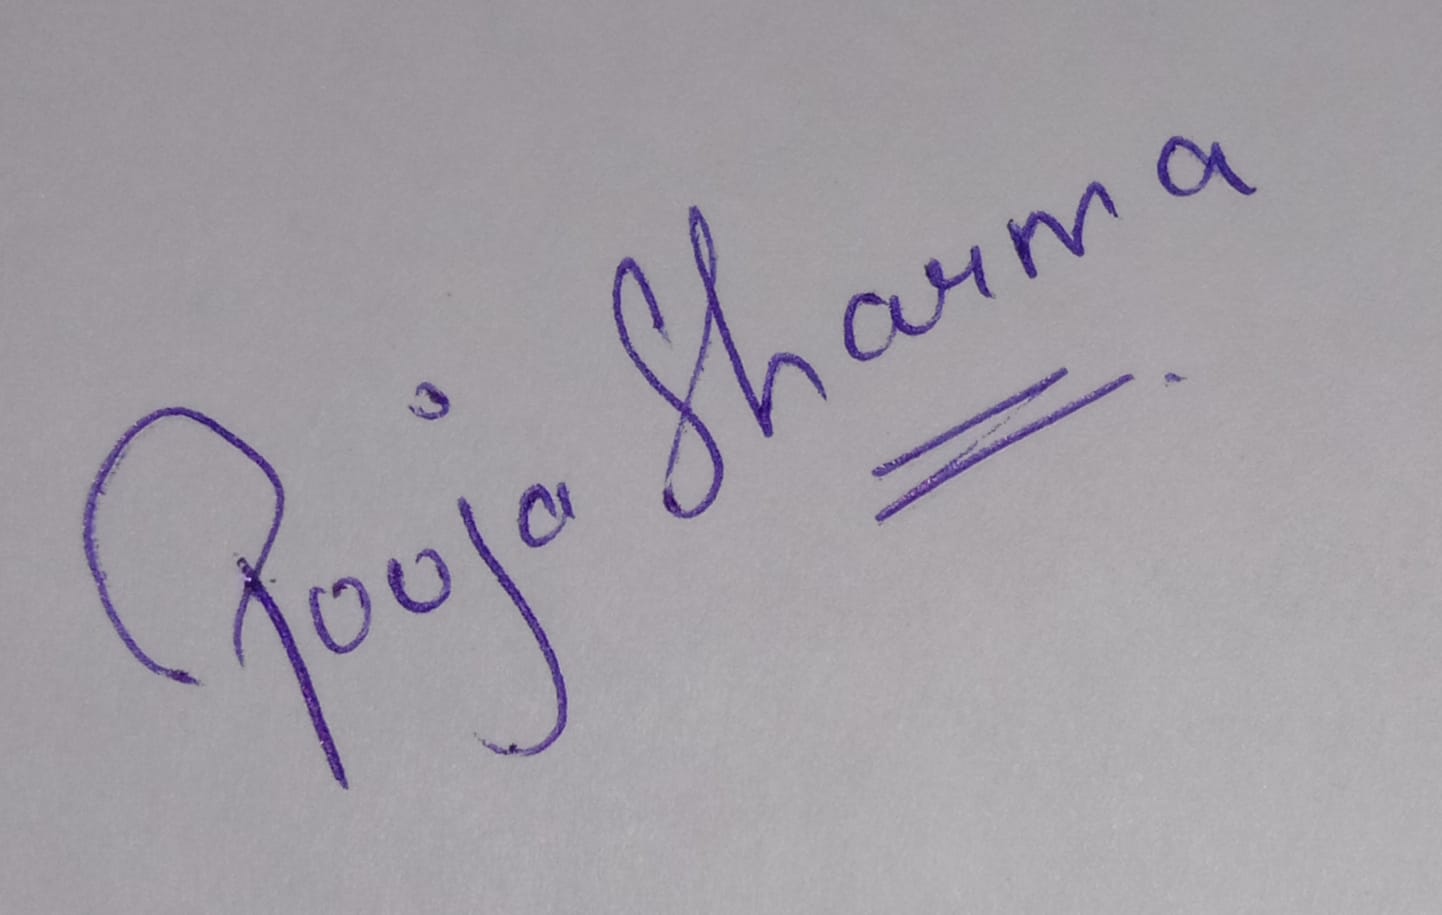 Pooja Sharma